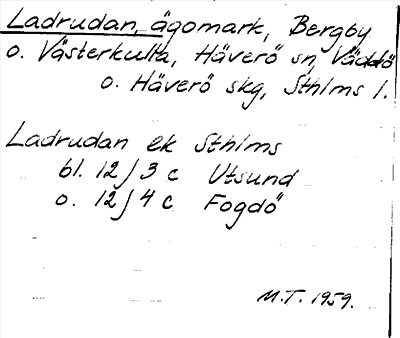 Ladrudan, ägomark, Bergby
o. Västerkulla, Häverö sn, Väddö
o. Häverö skg, Sthlms l.
Ladrudan ek Sthlms
bl. 12 j 3 c Utsund
o. 12 j 4 c Fogdö
M.T. 1959.